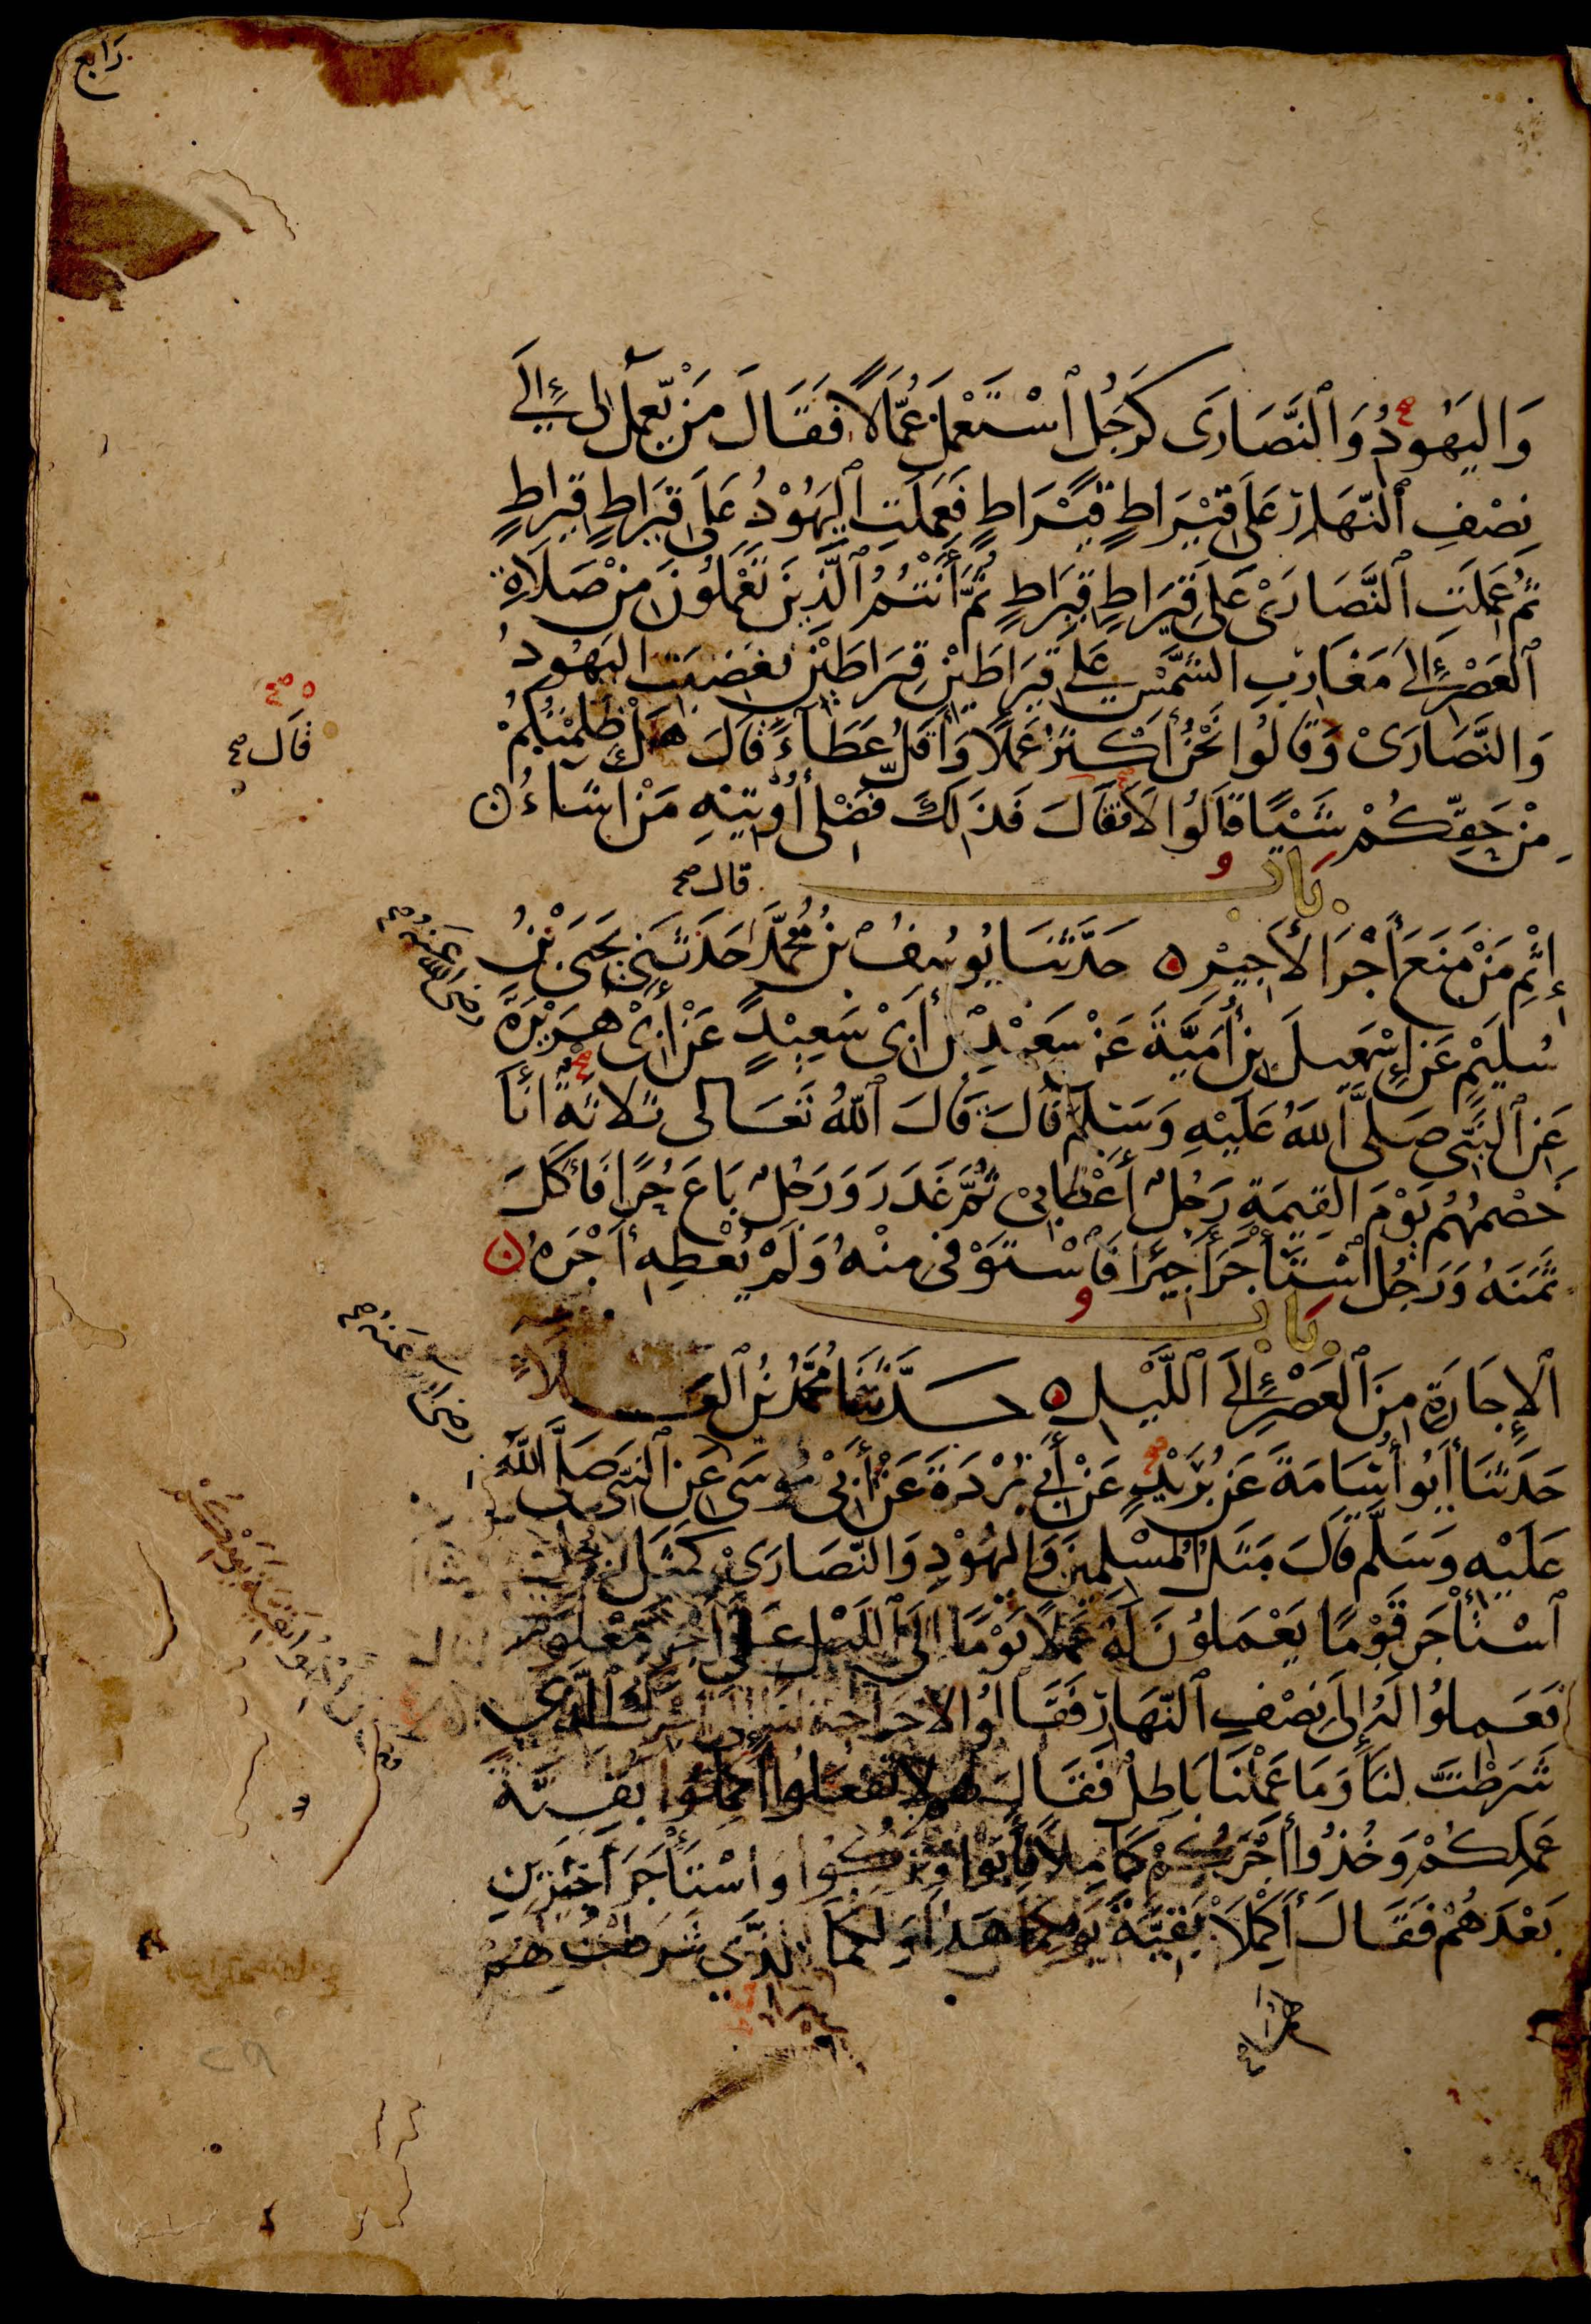 رابع
وَاليَهُودُ وَالنَّصَارَى كَرَجُلٍ ٱسْتَعْمَلَ عُمَّالًا فَقَالَ مَنْ يَّعْمَلُ لِى إِلَى
نِصْفِ ٱلنَّهَارِ عَلَى قِيْرَاطٍ قِيْرَاطٍ فَعَمِلَتِ ٱليَهُوْدُ عَلَى قِيرَاطٍ قِيرَاطٍ
ثُمَّ عَمِلَتِ ٱلنَّصَارَىْ عَلَى قِيرَاطٍ قِيرَاطٍ ثُمَّ أَنْتُمُ ٱلَّذِينَ تَعْمَلُونَ مِنْ صَلَاةِ
ٱلعَصْرِ إِلَى مَغَارِبِ الشَّمْسِ عَلَى قِيرَاطَيْنِ قِيرَاطَيْنِ فَغَضِبَتِ اليَهُودُ
وَالنَّصَارَىْ وَقَالُوا نَحْنُ أَكْثَرُ عَمَلًا وَأَقَلُّ عَطَآءً قَالَ هَلْ ظَلَمْتُكُمْ
قَال صح
مِنْ حَقِّكُمْ شَيْئًا قَالُوا لَا فَقَالَ فَذَالِكَ فَضْلِى أُوْتِيْهِ مَنْ اَشَاءُ
بَابُ
قال صح
إِثْمِ مَنْ مَنَعَ أَجْرَ الأَجِيْرِ حَدَّثَنَا يُوسُفُ بْنُ مُحَمَّدٍ حَدَّثَنِى يَحْيَى بْنُ
سُلَيْمٍ عَنْ إِسْمٰعِيلَ بْنِ أُمَيَّةَ عَنْ سَعِيْدِ بْنِ أَبِىْ سَعِيْدٍ عَنْ أَبِىْ هُرَيْرَةَ
رضى الله عنه صح
عَنِ ٱلنَّبِىِّ صَلَّى ٱللهُ عَلَيْهِ وَسَلَّمَ قَالَ قَالَ ٱللهُ تَعَالى ثَلَاثَةٌ أَنَا
خَصْمُهُمْ يَوْمَ القِيٰمَةِ رَجُلٌ أَعْطَا بِىْ ثُمَّ غَدَرَ وَرَجُلٌ بَاعَ حُرًّا فَأَكَلَ
ثَمَنَهُ وَرَجُلٌ ٱسْتَأْجَرَ أَجِيرًا فَٱسْتَوْفَى مِنْهُ وَلَمْ يُعْطِهِ أَجْرَهُ
بَابُ
ٱلإِجَارَةِ مِنَ ٱلْعَصْرِ إِلَى ٱللَّيْلِ حَدَّثَنَا مُحَمَّدُ بْنُ ٱلعَلَاءِ
حَدَّثَنَا أَبُو أُسَامَةَ عَنْ بُرَيْدٍ عَنْ أَبِى بُرْدَةَ عَنْ أَبِىْ مُوسَى عَنِ ٱلنَّبِىِّ صَلَّى اللهُ
رضى الله عنه صح
عَلَيْهِ وَسَلَّمَ قَالَ مَثَلُ الْمُسْلِمِينَ وَاليَهُوْدِ وَالنَّصَارَىْ كَمَثَلِ رَجُلٍ
ٱسْتَأْجَرَ قَوْمًا يَعْمَلُوْنَ لَهُ عَمَلًا يَوْمًا إِلَى ٱللَّيْلِ عَلَى أَجْرٍ مَعْلُومٍ
فَعَمِلُوا لَهُ إِلَى نِصْفِ ٱلنَّهَارِ فَقَالُوا لَا حَاجَةَ لَنَا إِلَى أَجْرِكَ ٱلَّذِى
شَرَطْتَ لَنَا وَمَا عَمِلْنَا بَاطِلٌ فَقَالَ لَهُمْ لَا تَفْعَلُوا أَكْمِلُوا بَقِيَّةَ
عَمَلِكُمْ وَخُذُوا أَجْرَكُمْ كَامِلًا فَأَبَوْا وَتَرَكُوا وَاسْتَأْجَرَ أَجِيرَيْنِ
بَعْدَهُمْ فَقَالَ أَكْمِلَا بَقِيَّةَ يَوْمِكُمَا هَذَا وَلَكُمَا ٱلَّذِى شَرَطْتُ لَهُمْ